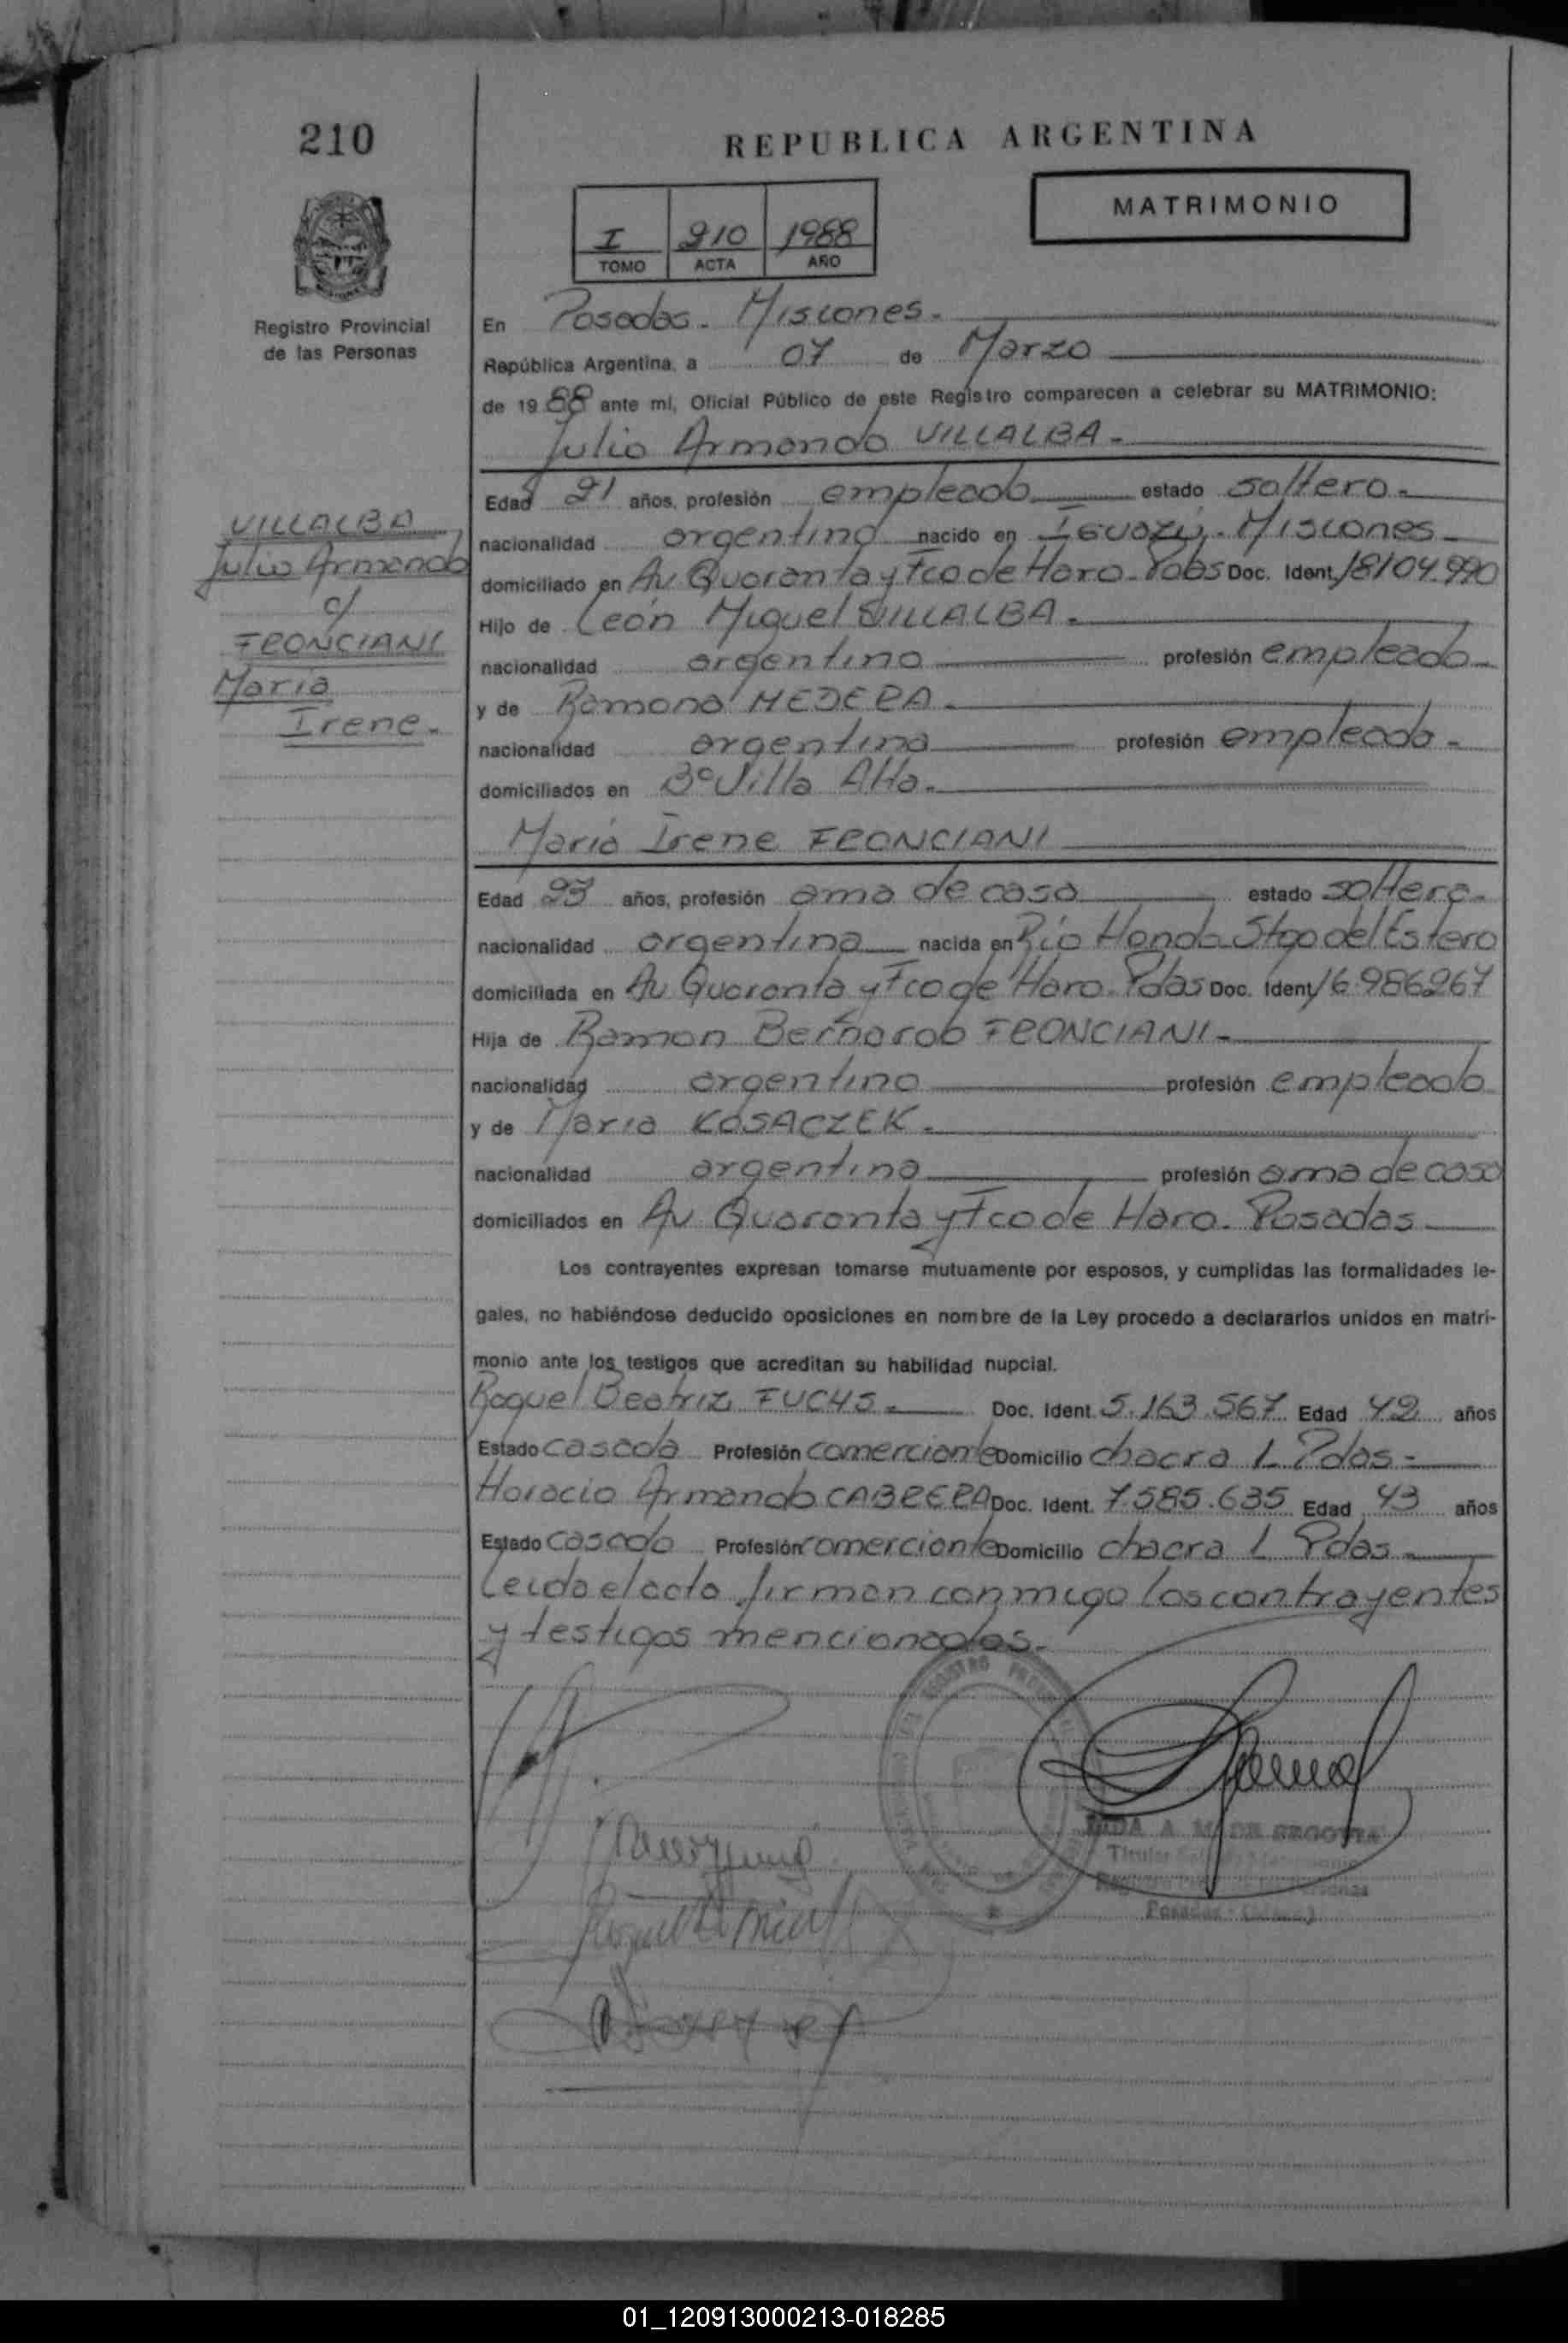 210
REPUBLICA ARGENTINA
MATRIMONIO
I 210 1988
TOMO ACTA AÑO
Registro Provincial
de las Personas
En Posadas. Misiones.
República Argentina, a 07 de Marzo
de 1988 ante mí, Oficial Público de este Registro comparecen a celebrar su MATRIMONIO:
Julio Armando VILLALBA.
Edad 21 años, profesión empleado estado soltero.
nacionalidad argentino nacido en Iguazú. Misiones
domiciliado en Av Quaranta y Fco de Haro. Pdas Doc. Ident. 18104.990
Hijo de León Miguel VILLALBA.
nacionalidad argentino profesión empleado
y de Ramona MEDERA.
nacionalidad argentina profesión empleada.
domiciliados en Bº Villa Alta.
VILLALBA
Julio Armando
c/
FRONCIANI
María
Irene.
María Irene FRONCIANI
Edad 23 años, profesión ama de casa estado soltera.
nacionalidad argentina nacida en Río Hondo Stgo del Estero
domiciliada en Av Quaranta y Fco de Haro. Pdas Doc. Ident. 16.986267
Hija de Ramon Bernardo FRONCIANI.
nacionalidad argentino profesión empleado
y de María KOSACZEK.
nacionalidad argentina profesión ama de casa
domiciliados en Av Quaranta y Fco de Haro. Posadas
Los contrayentes expresan tomarse mutuamente por esposos, y cumplidas las formalidades le-
gales, no habiéndose deducido oposiciones en nombre de la Ley procedo a declararlos unidos en matri-
monio ante los testigos que acreditan su habilidad nupcial.
Raquel Beatriz FUCHS. Doc. Ident. 5.163.567 Edad 42 años
Estado casada Profesión comerciante Domicilio chacra 1 Pdas.
Horacio Armando CABRERA Doc. Ident. 7.585.635 Edad 43 años
Estado casado Profesión comerciante Domicilio chacra 1 Pdas.
Leido el acta firman conmigo los contrayentes
y testigos mencionados.
REGISTRO
A. M. DE SEGOVIA
Titular
Posadas
01_120913000213-018285